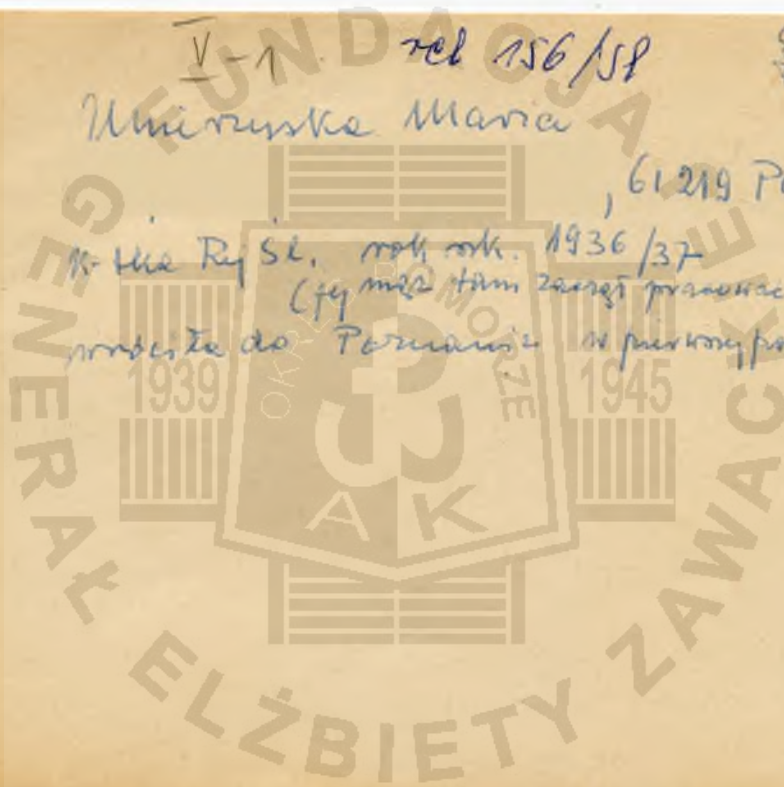 V-1. rel 156/58
Umirzyska Maria
, 61 219 P
K-tka Rej Śl. rok szk. 1936/37
(jej mąż tam zaczął pracować
wróciła do Poznania w pierwszy
FUNDACJA GENERAŁ ELŻBIETY ZAWACKIEJ
1939 1945
OKRĘG POMORZE
AK